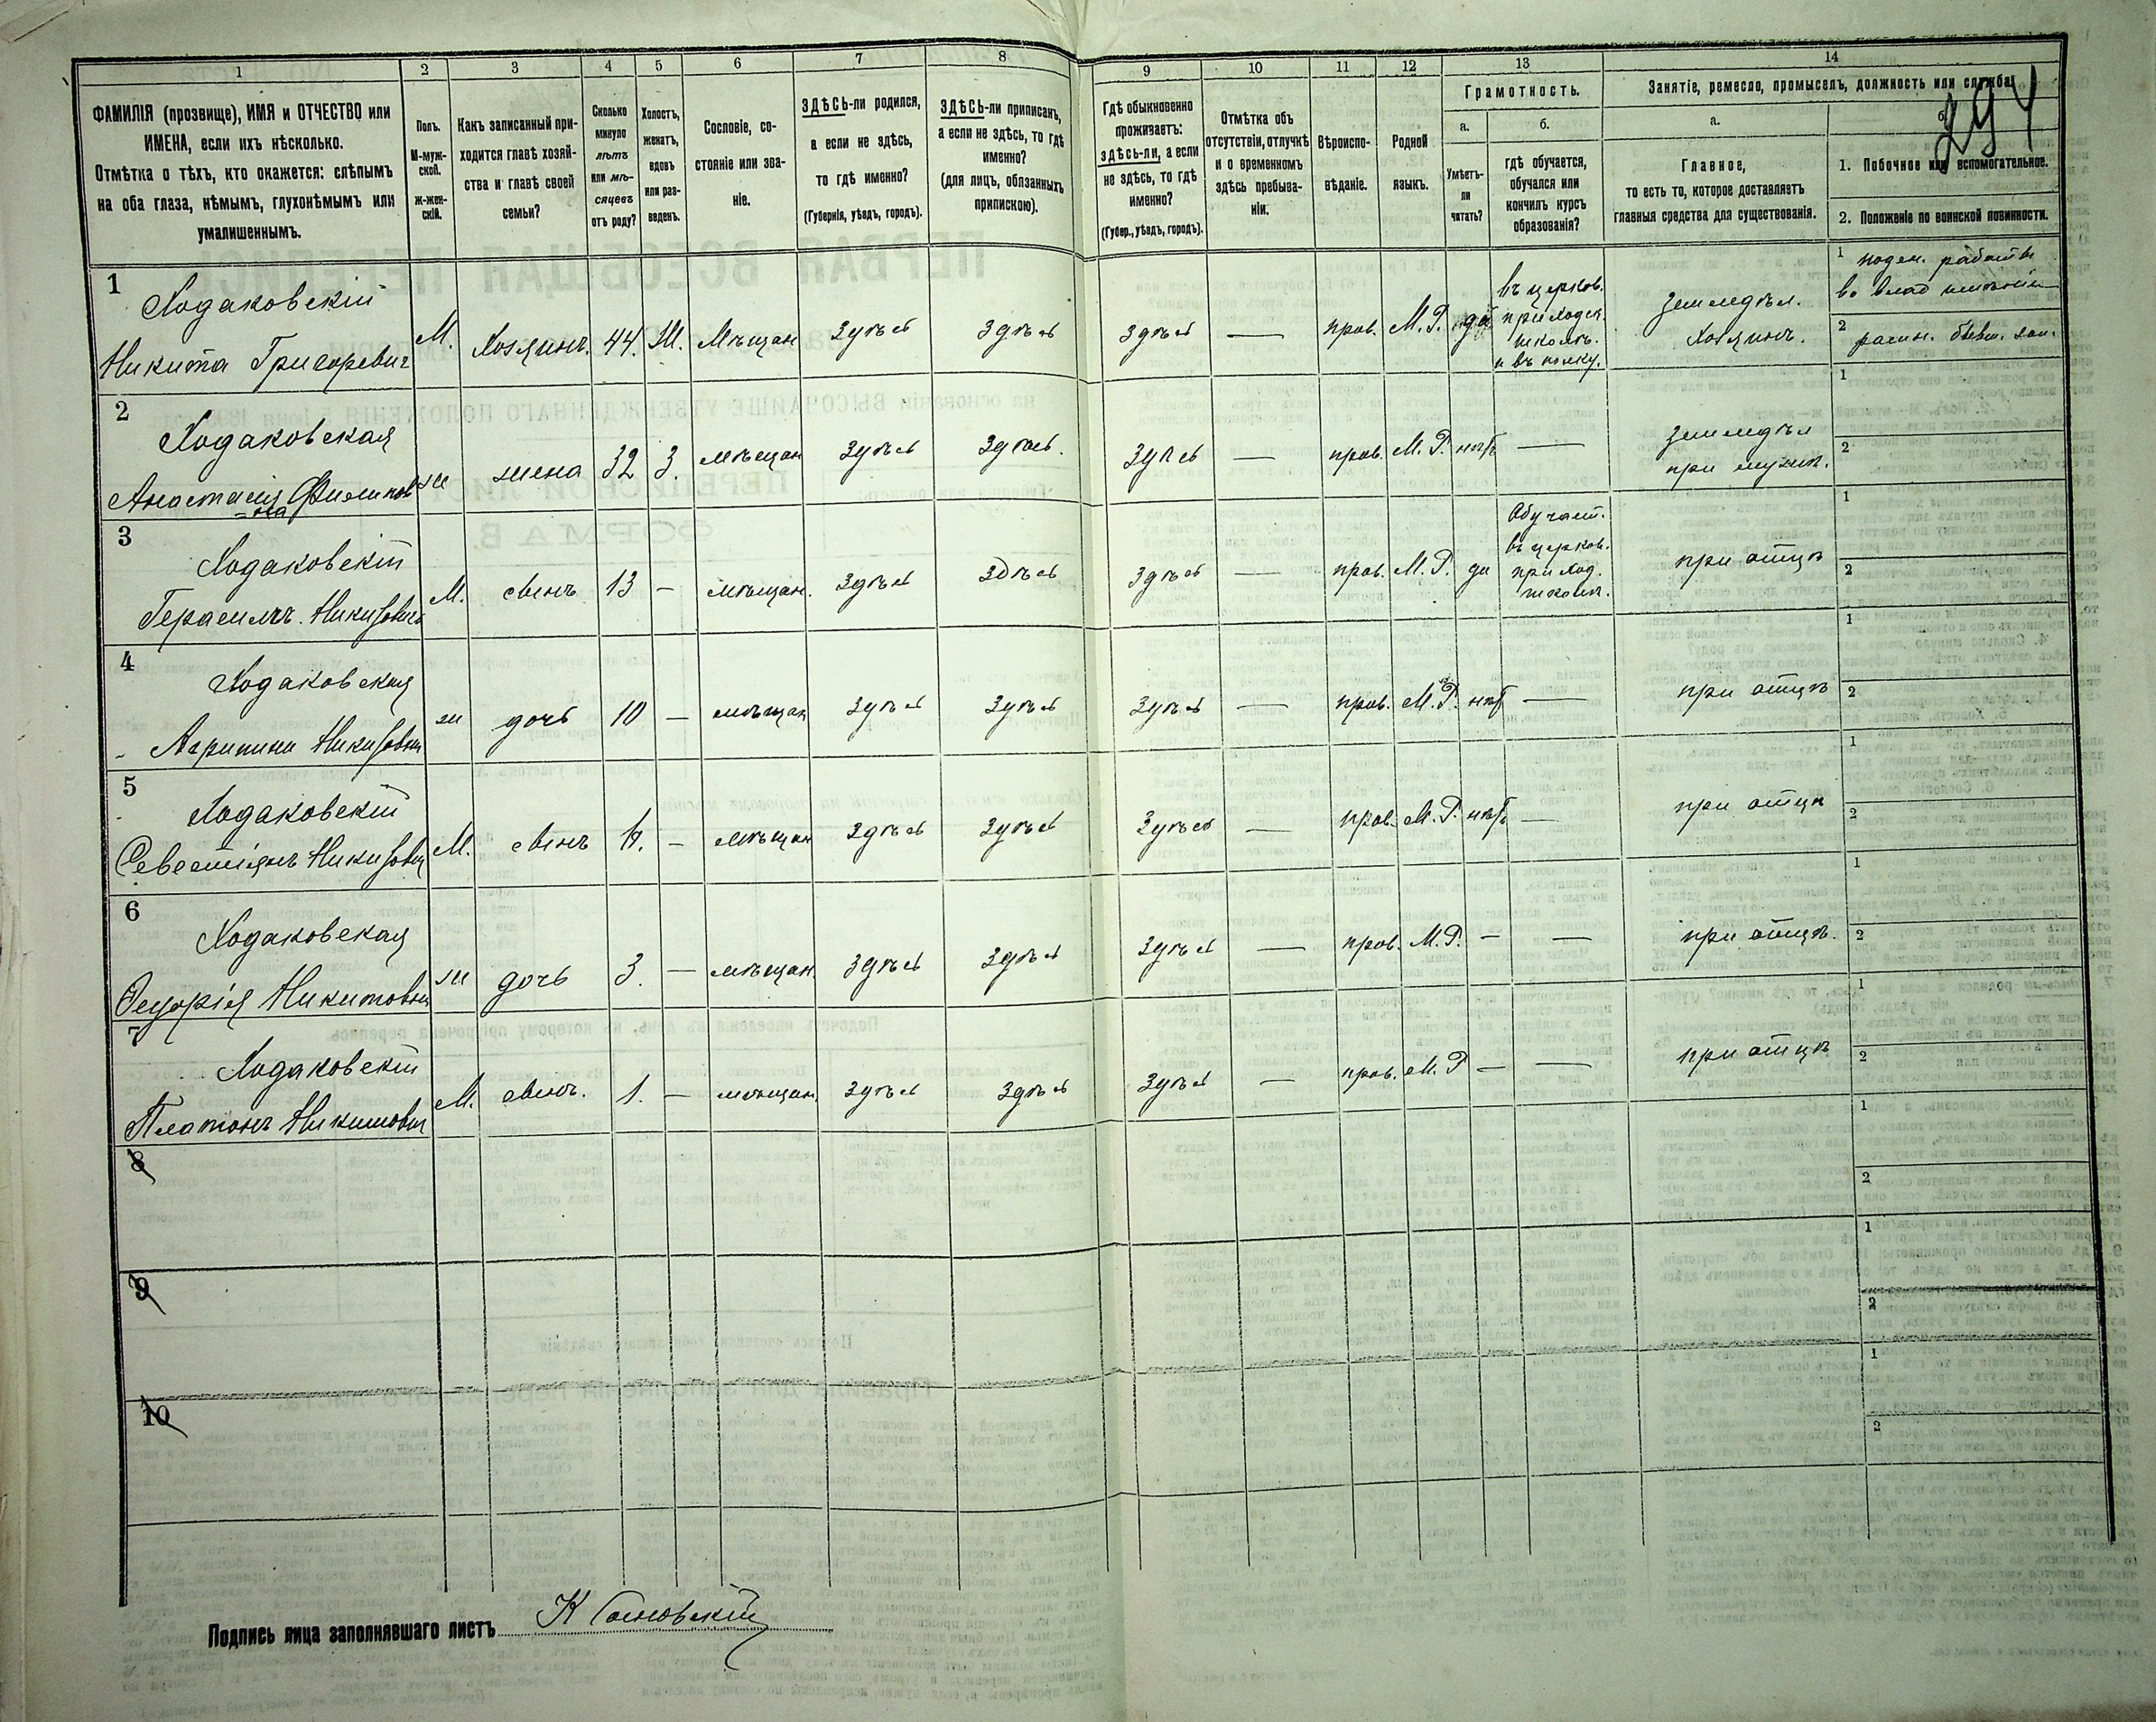 1 2 3 4 5 6 7 8 9 10 11 12 13 14
ФАМИЛІЯ (прозвище), ИМЯ и ОТЧЕСТВО или
ИМЕНА, если ихъ нѣсколько.
Отмѣтка о тѣхъ, кто окажется: слѣпымъ
на оба глаза, нѣмымъ, глухонѣмымъ или
умалишеннымъ.
Полъ.
М-муж-
ской.
ж-жен-
скій.
Какъ записанный при-
ходится главѣ хозяй-
ства и главѣ своей
семьи?
Сколько
минуло
лѣтъ
или мѣ-
сяцевъ
отъ роду?
Холостъ,
женатъ,
вдовъ
или раз-
веденъ.
Сословіе, со-
стояніе или зва-
ніе.
ЗДѢСЬ-ли родился,
а если не здѣсь,
то гдѣ именно?
(Губернія, уѣздъ, городъ).
ЗДѢСЬ-ли приписанъ,
а если не здѣсь, то гдѣ
именно?
(для лицъ, обязанныхъ
припискою).
Гдѣ обыкновенно
проживаетъ:
здѣсь-ли, а если
не здѣсь, то гдѣ
именно?
(Губер., уѣздъ, городъ).
Отмѣтка объ
отсутствіи, отлучкѣ
и о временномъ
здѣсь пребыва-
ніи.
Вѣроиспо-
вѣданіе.
Родной
языкъ.
Грамотность.
а.
Умѣетъ-
ли
читать?
б.
гдѣ обучается,
обучался или
кончилъ курсъ
образованія?
Занятіе, ремесло, промыселъ, должность или служба.
а.
Главное,
то есть то, которое доставляетъ
главныя средства для существованія.
б.
294
1. Побочное или вспомогательное.
2. Положеніе по воинской повинности.
1
Ходаковскій
Никита Григоревич
М.
Хозяинъ.
44.
Ж.
Мѣщан
Здѣсь
Здѣсь
Здѣсь
—
прав.
М.Р.
да
въ церков.
приходск.
школѣ.
и въ полку.
земледѣл.
Хозяинъ.
1 поден. работы
2
2
Ходаковская
Анастасія Филипов
-на
ж
жена
32
З.
мѣщан
Здѣсь
Здѣсь.
Здѣсь
—
прав.
М.Р.
нѣтъ
—
земледѣл
при мужѣ.
1
2
3
Ходаковскій
Герасимъ Никитовичъ
М.
сынъ
13
—
мѣщан.
Здѣсь
Здѣсь
Здѣсь
—
прав.
М.Р.
да
Обучает.
въ церков.
приход.
школѣ.
при отцѣ
1
2
4
Ходаковская
Агрипина Никитовна
ж
дочь
10
—
мѣщан
Здѣсь
Здѣсь
Здѣсь
—
прав.
М.Р.
нѣт
—
при отцѣ
1
2
5
Ходаковскій
Севестіянъ Никитович
М.
сынъ
—
мѣщан
Здѣсь
Здѣсь
Здѣсь
—
прав.
М.Р.
нѣтъ
—
при отцѣ
1
2
6
Ходаковская
Никитовна
ж
дочь
3.
—
мѣщан.
Здѣсь
Здѣсь
Здѣсь
—
прав.
М.Р.
—
—
при отцѣ.
1
2
7
Ходаковскій
Платонъ Никитович
М.
сынъ.
1.
—
мѣщан.
Здѣсь
Здѣсь
Здѣсь
—
прав.
М.Р
—
—
при отцѣ
1
2
8
1
2
9
1
2
10
1
2
Подпись лица заполнявшаго листъ